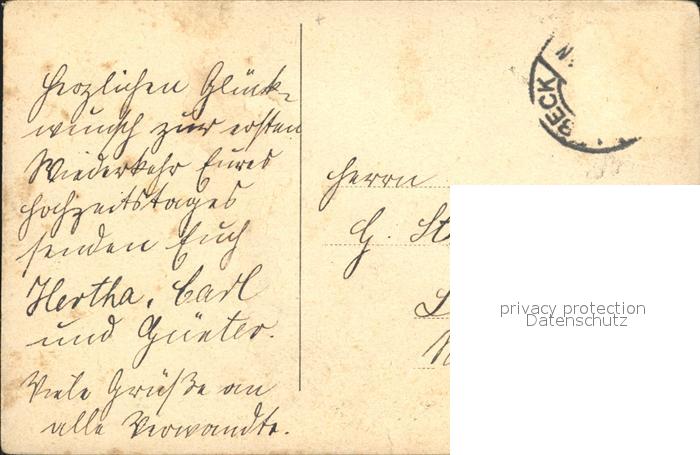 Herzlichen Glück-
wunsch zur ersten
Wiederkehr Eures
Hochzeitstages
senden Euch
Hertha, Carl
und Günter.
Viele Grüße an
alle Verwandte.
BECK
Herrn
G. St
privacy protection
Datenschutz